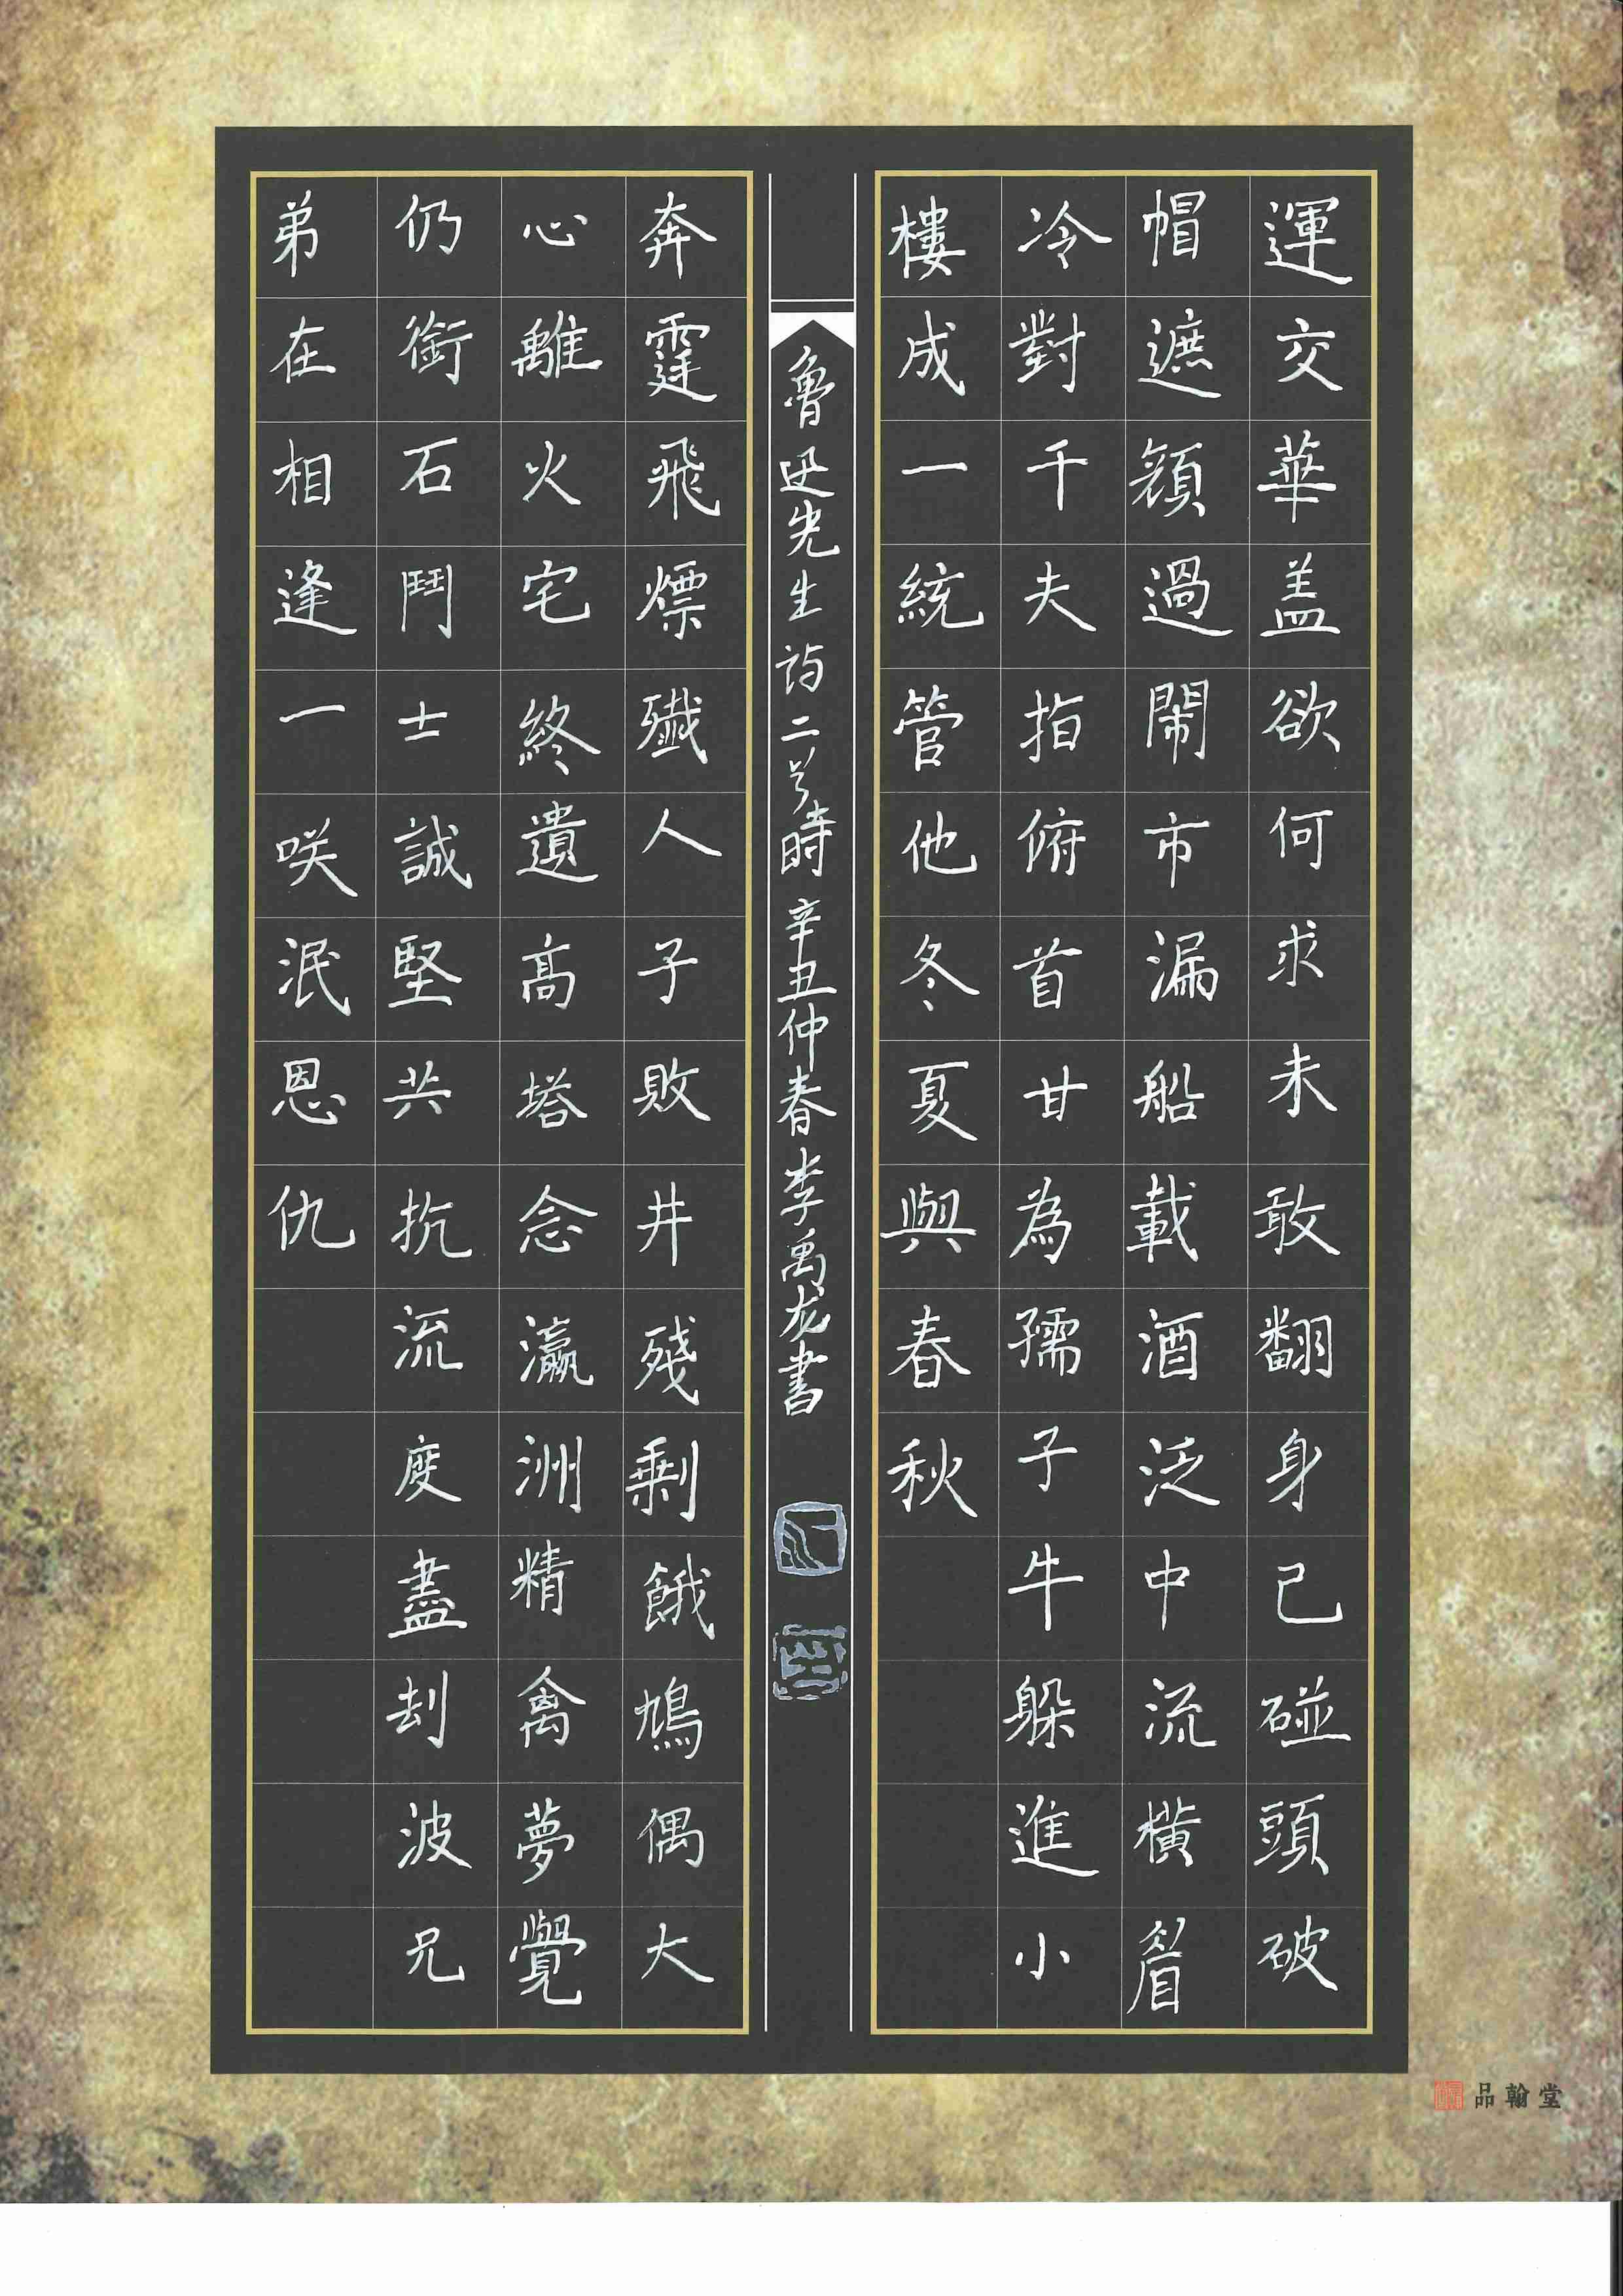 運交華盖欲何求未敢翻身已碰頭破
帽遮顏過鬧市漏船載酒泛中流橫眉
冷對千夫指俯首甘為孺子牛躲進小
樓成一統管他冬夏與春秋
魯迅先生詩二首時辛丑仲春李禹龙書
奔霆飛熛殲人子敗井殘剩餓鳩偶大
心離火宅終遺高塔念瀛洲精禽夢覺
仍銜石鬥士誠堅共抗流度盡劫波兄
弟在相逢一咲泯恩仇
品翰堂